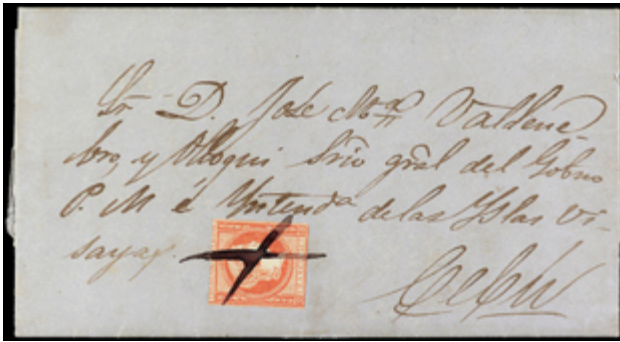 Sr. D. José Ma. Valdene-
bro, y Olloqui Srio gral del Gobno
P. M é Yntenda de las Yslas Vi-
sayas.
Cebú